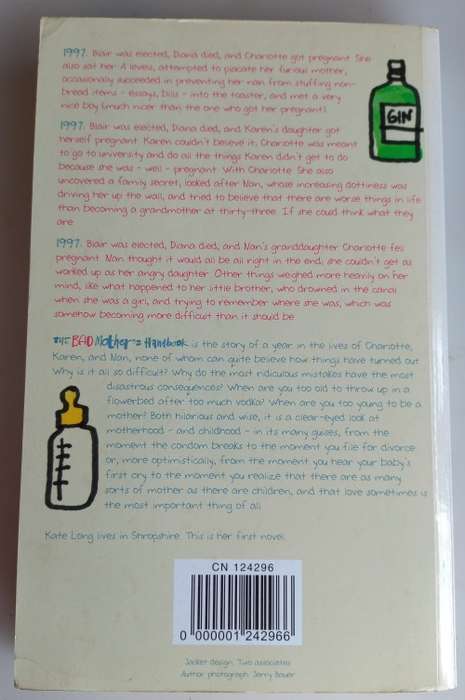 1997. Blair was elected, Diana died, and Charlotte got pregnant. She
also sat her A levels, attempted to placate her furious mother,
occasionally succeeded in preventing her nan from stuffing non-
bread items - essays, bills - into the toaster, and met a very
nice boy (much nicer than the one who got her pregnant).
GIN
1997. Blair was elected, Diana died, and Karen's daughter got
herself pregnant. Karen couldn't believe it; Charlotte was meant
to go to university and do all the things Karen didn't get to do
because she was - well - pregnant. With Charlotte. She also
uncovered a family secret, looked after Nan, whose increasing dottiness was
driving her up the wall, and tried to believe that there are worse things in life
than becoming a grandmother at thirty-three. If she could think what they
are.
1997. Blair was elected, Diana died, and Nan's granddaughter Charlotte fell
pregnant. Nan thought it would all be all right in the end; she couldn't get as
worked up as her angry daughter. Other things weighed more heavily on her
mind, like what happened to her little brother, who drowned in the canal
when she was a girl, and trying to remember where she was, which was
somehow becoming more difficult than it should be.
THE BAD Mother's Handbook is the story of a year in the lives of Charlotte,
Karen, and Nan, none of whom can quite believe how things have turned out.
Why is it all so difficult? Why do the most ridiculous mistakes have the most
disastrous consequences? When are you too old to throw up in a
flowerbed after too much vodka? When are you too young to be a
mother? Both hilarious and wise, it is a clear-eyed look at
motherhood - and childhood - in its many guises, from the
moment the condom breaks to the moment you file for divorce
or, more optimistically, from the moment you hear your baby's
first cry to the moment you realize that there are as many
sorts of mother as there are children, and that love sometimes is
the most important thing of all.
Kate Long lives in Shropshire. This is her first novel.
CN 124296
0 000001 242966
Jacket design: Two associates
Author photograph: Jerry Bauer